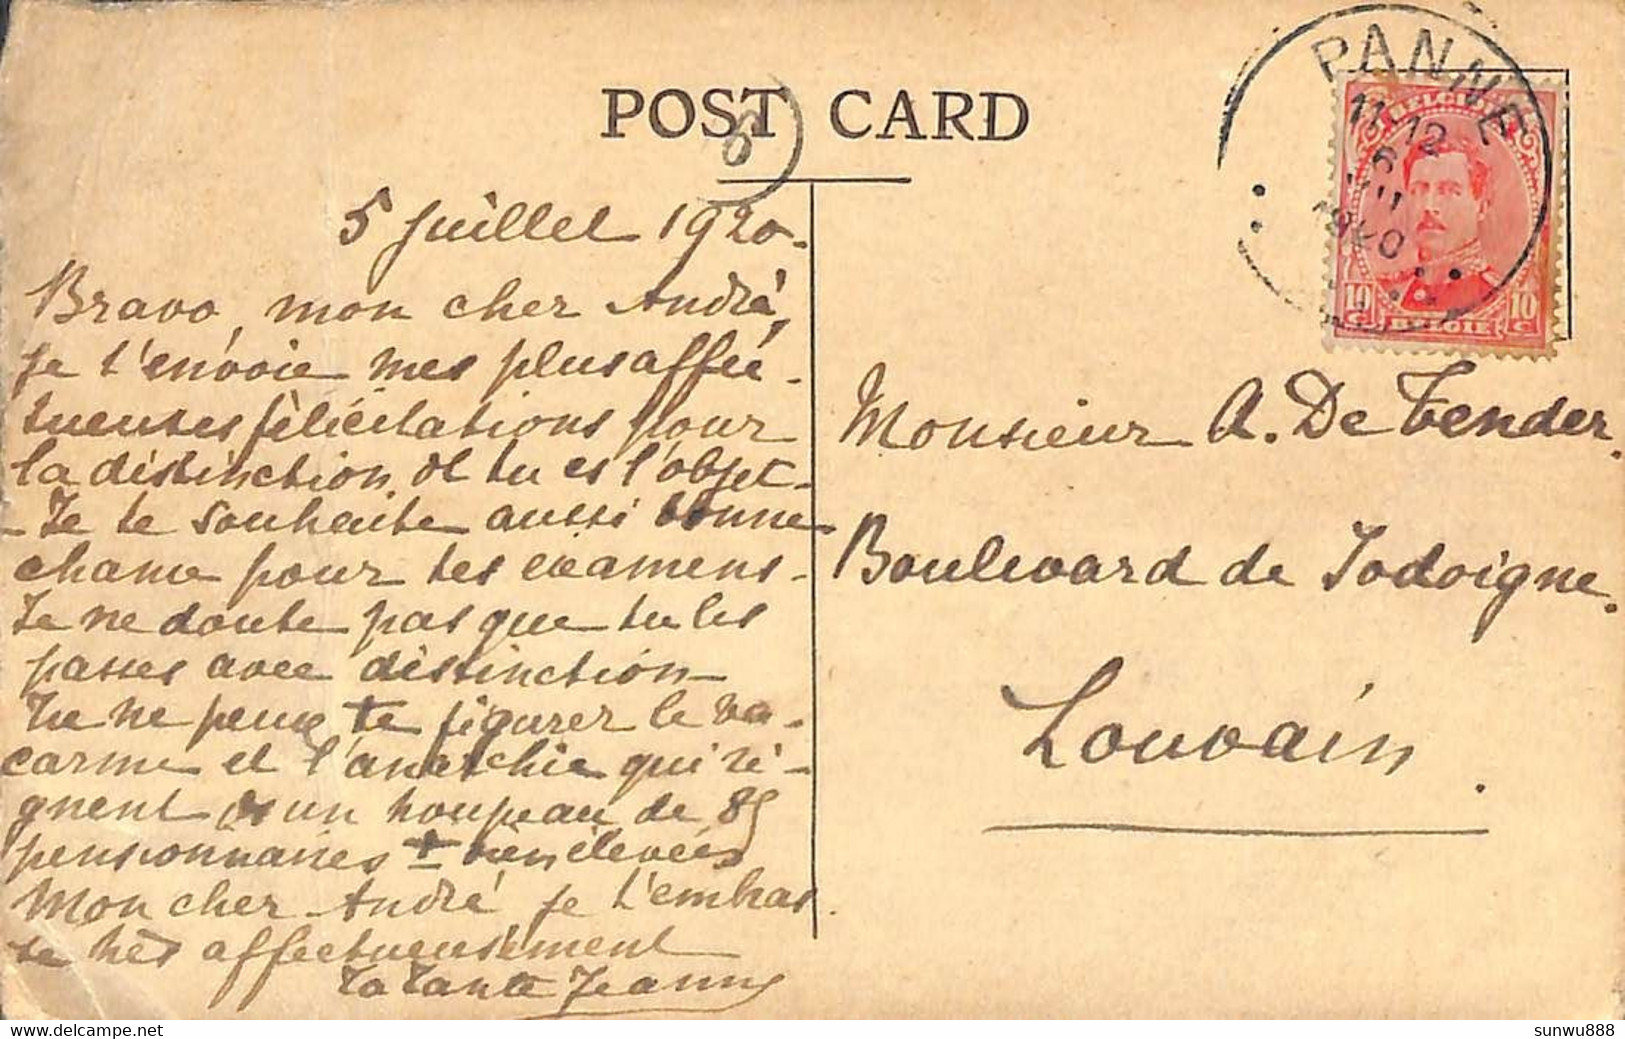 POST CARD
6
PANNE
11-12
5
1920
BELGIQUE
10 c
10 c
BELGIË
5 Juillet 1920.
Bravo, mon cher André,
je t'envoie mes plus affec-
tueuses félicitations pour
la distinction dt tu es l'objet-
- Je te souhaite aussi bonne
chance pour tes examens.
Je ne doute pas que tu les
passes avec distinction
Tu ne peux te figurer le va-
carme et l'anarchie qui rè-
gnent ds un troupeau de 85
pensionnaires ± bien élevées
Mon cher André, je t'embras
se très affectueusement
Ta Tante Jeanne
Monsieur A. De Tender.
Boulevard de Jodoigne.
Louvain.
sunwu888